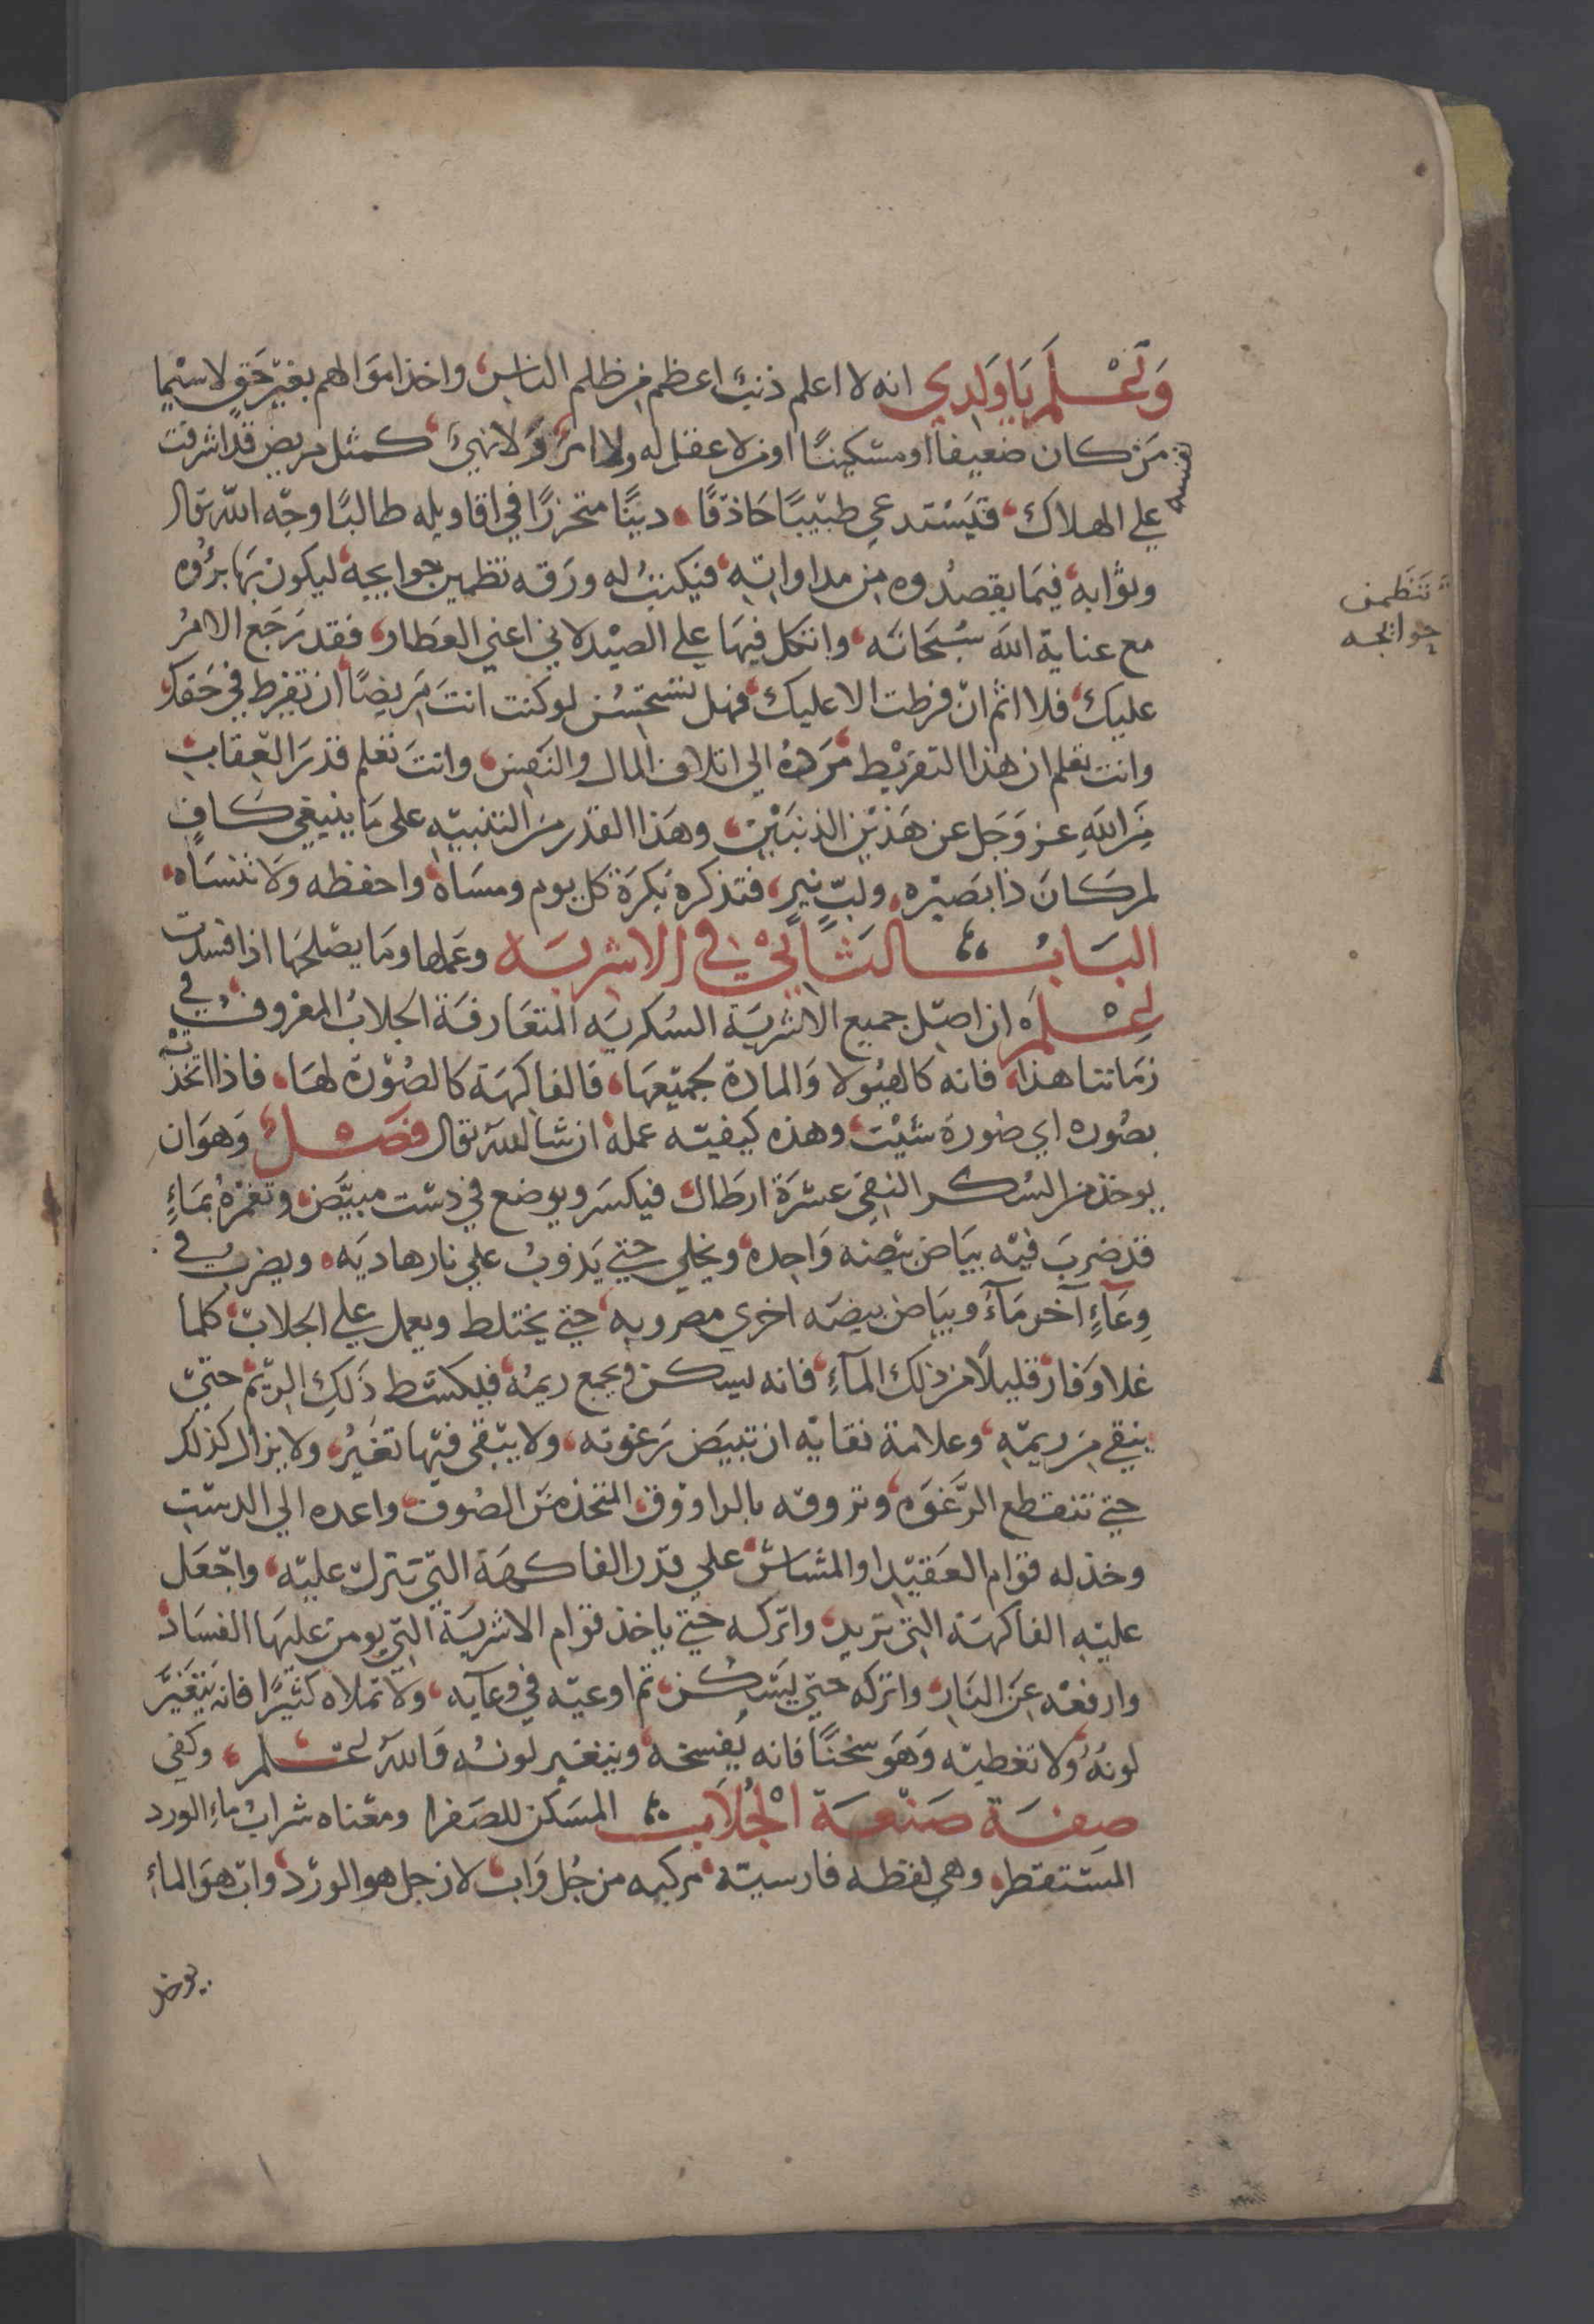 وَتَعْلَمَ يَا وَلَدِي انه لا اعلم ذنبًا اعظم من ظلم الناس، واخذ اموالهم بغير حَقٍ لاسيما
مَن كان ضعيفا او مسكينًا او من لا عقل له ولا امرَ وَلا نهيَ، كمثل مريض قد اشرفت
نفسه
علي الهلاك، فيَسْتدعي طبيبًا حَاذقًا، دينًا متحرزًا في اقاويله طالبًا وجه الله تعالى
وثوابه، فيمَا يقصدُوه من مداواته، فيكتبُ له ورَقه تظمين حوايجه، ليكون بَها برُؤه
تتظمن
حوايجه
مع عناية الله سُبحَانَه، واتكل فيهَا علي الصيْدلاني اعني العَطار، فقد رَجَع الامرُ
عليك، فلا اثم ان فرطت الا عليك، فهل تستحسُن لو كنت انتَ مَريضًا ان تفرط في حَقك،
وانت تعلم ان هذا التفريْط، مَرَدهُ الي اتلاف المال والنَفس، وانتَ تعلم قدرَ العقاب
مِنَ اللهِ عز وَجَل عن هَذيْن الذنبَيْن، وهَذا القدر مِن التنبيه على مَا ينبغي كافٍ
لمن كانَ ذا بصَيْره، ولبٍّ نيرٍ، فتذكره بُكرَة كل يوم ومسَاهُ، واحفظه وَلا تنسَاه،
البَابُ الثاني في الاشربَه وعَملها ومَا يصْلحهَا اذا فسدت
اعْلَمْ ان اصْل جميع الاشربَة السُكريَه المتعَارفَة الجلابُ المعْروفُ، في
زمَاننا هذا، فانه كالهيُولا وَالمادة لجميْعهَا، فالفاكهَة كالصُوْرة لهَا، فاذا اتخذت
بصُوره اي صُورة شئيْت، وهذه كيفيته عملهُ ان شا الله تعالى فصْلٌ وَهوَ ان
يوخذ من السُكر النقي عشرَة ارطال، فيكسَر ويوضع في دسْت مبيَّض، وتغمُرهُ بمَاءٍ
قد ضربَ فيْه بيَاض بيْضه وَاحِده، ويخلي حتي يَذوبُ علي نار هادِيَه، ويضربُ في
وِعَاءٍ آخر مَآءً وبيَاض بيضَه اخري مضروبه، حتي يختلط ويعمل علي الجلاب، كلما
غلا وَفار، قليلاً من ذلك المآءِ، فانه ليسكن ويجمع ريمُه، فيكشط ذَلكِ الريْم، حتيّ
ينقي مِن ريمّهِ، وعلامة نقايه ان تبيَض رَغوته، ولا يبْقى فيْها تغَيرُ، ولا يزال كذلك
حتي تنقطع الرَّغوَه، وتروقه بالراووق، المتخذ منَ الصُوف، واعده الي الدسْتِ
وخذ له قوام العَقيْد، او المشاش، علي قدْر الفاكهَة التي تنزل عليْه، واجْعَل
عليْهِ الفاكهَة التي تريد، واترَكه حَتي ياخذ قوام الاشربَة التي يومن عليهَا الفسَاد،
وارفعْه عِنَ النَار، واتركه حتيّ ليَسْكُن، ثم اوعيْه في وعآيه، وَلا تملاه كثيْرًا فانه يَتغَيَّر
لونهُ، وَلا تغطيْه وَهَو سُخنًا، فانه يُفسخهُ وينغير لونهُ وَاللهُ اعْلم، وكفي
صِفَة صَنْعَة الجُلاَب المسَكن للصَفرا ومعْناه شرابُ ماءِ الورد
المَسْتقطر، وهي لفظه فارسيَّة، مركبه من جُل وَاب، لان جل هو الورْد، واب هَوَ الماءِ
يوخذ